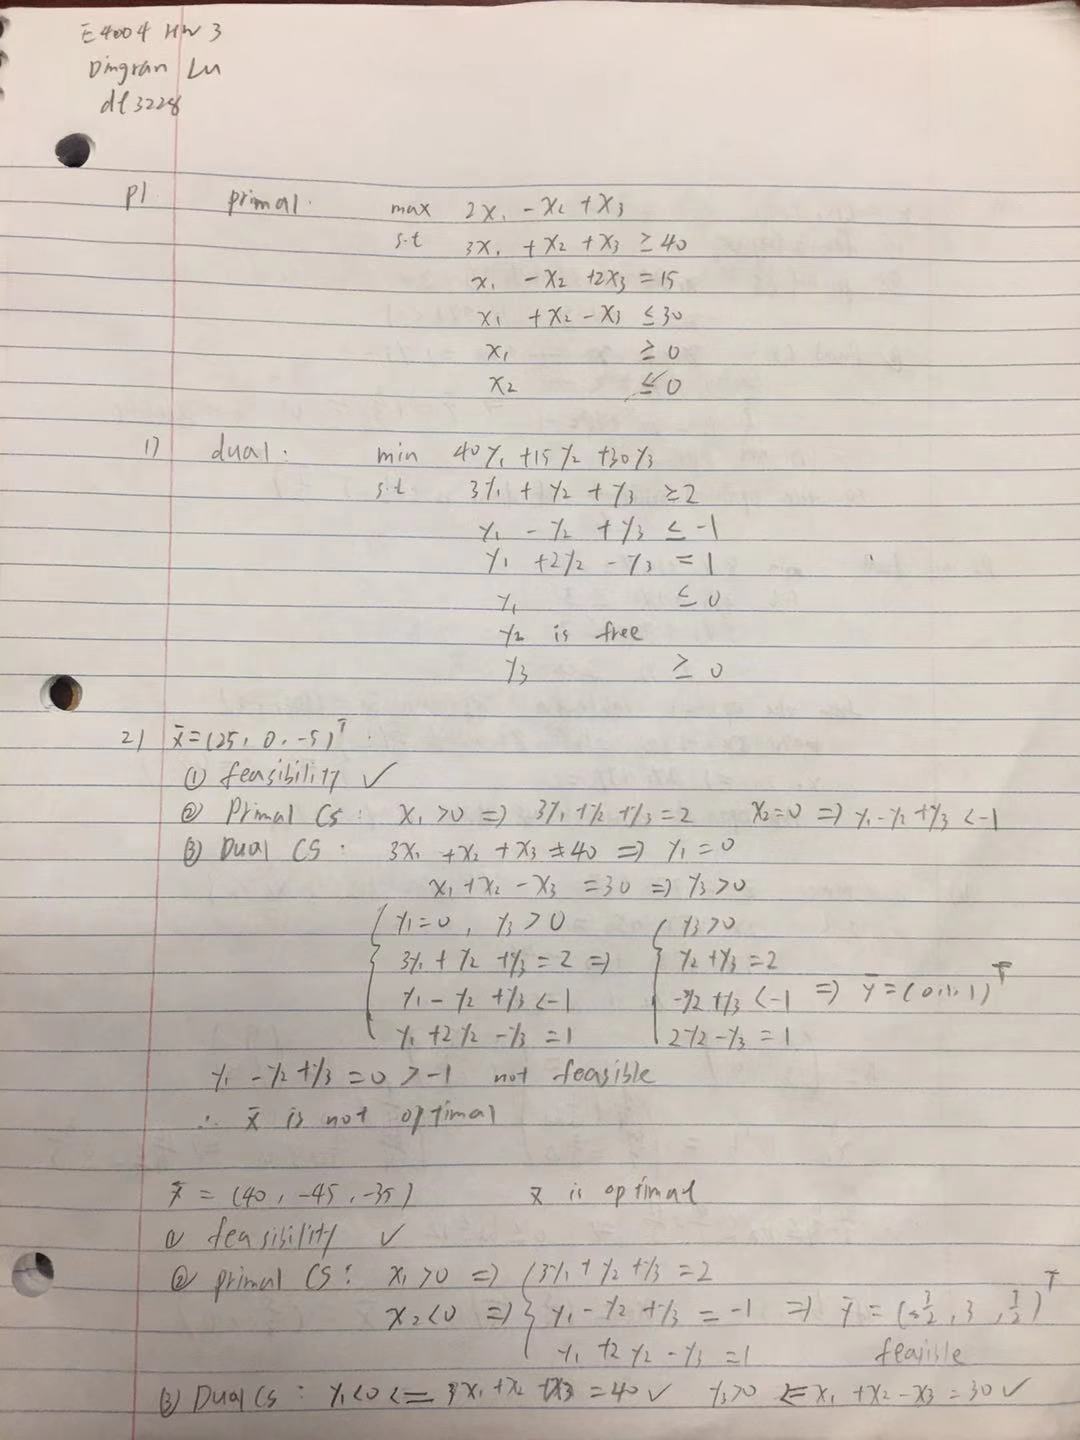 E4004 HW 3
Dingran Lu
dl3228
P1. primal. max 2x₁ - x₂ + x₃
s.t 3x₁ + x₂ + x₃ ≥ 40
x₁ - x₂ + 2x₃ = 15
x₁ + x₂ - x₃ ≤ 30
x₁ ≥ 0
x₂ ≤ 0
1) dual. min 40y₁ + 15y₂ + 30y₃
s.t 3y₁ + y₂ + y₃ ≥ 2
y₁ - y₂ + y₃ ≤ -1
y₁ + 2y₂ - y₃ = 1
y₁ ≤ 0
y₂ is free
y₃ ≥ 0
2) x̄ = (25, 0, -5)ᵀ.
① feasibility ✓
② Primal CS: x₁ > 0 => 3y₁ + y₂ + y₃ = 2 x₂ = 0 => y₁ - y₂ + y₃ < -1
③ Dual CS: 3x₁ + x₂ + x₃ ≠ 40 => y₁ = 0
x₁ + x₂ - x₃ = 30 => y₃ > 0
{ y₁ = 0, y₃ > 0 { y₃ > 0
3y₁ + y₂ + y₃ = 2 => y₂ + y₃ = 2
y₁ - y₂ + y₃ < -1 -y₂ + y₃ < -1 => ȳ = (0, 1, 1)ᵀ
y₁ + 2y₂ - y₃ = 1 2y₂ - y₃ = 1
y₁ - y₂ + y₃ = 0 > -1 not feasible
∴ x̄ is not optimal
x̄ = (40, -45, -35) x̄ is optimal
① feasibility ✓
② primal CS: x₁ > 0 => { 3y₁ + y₂ + y₃ = 2
x₂ < 0 => y₁ - y₂ + y₃ = -1 => ȳ = (-½, 3, ½)ᵀ
y₁ + 2y₂ - y₃ = 1 feasible
③ Dual CS: y₁ < 0 <= 3x₁ + x₂ + x₃ = 40 ✓ y₃ > 0 <= x₁ + x₂ - x₃ = 30 ✓